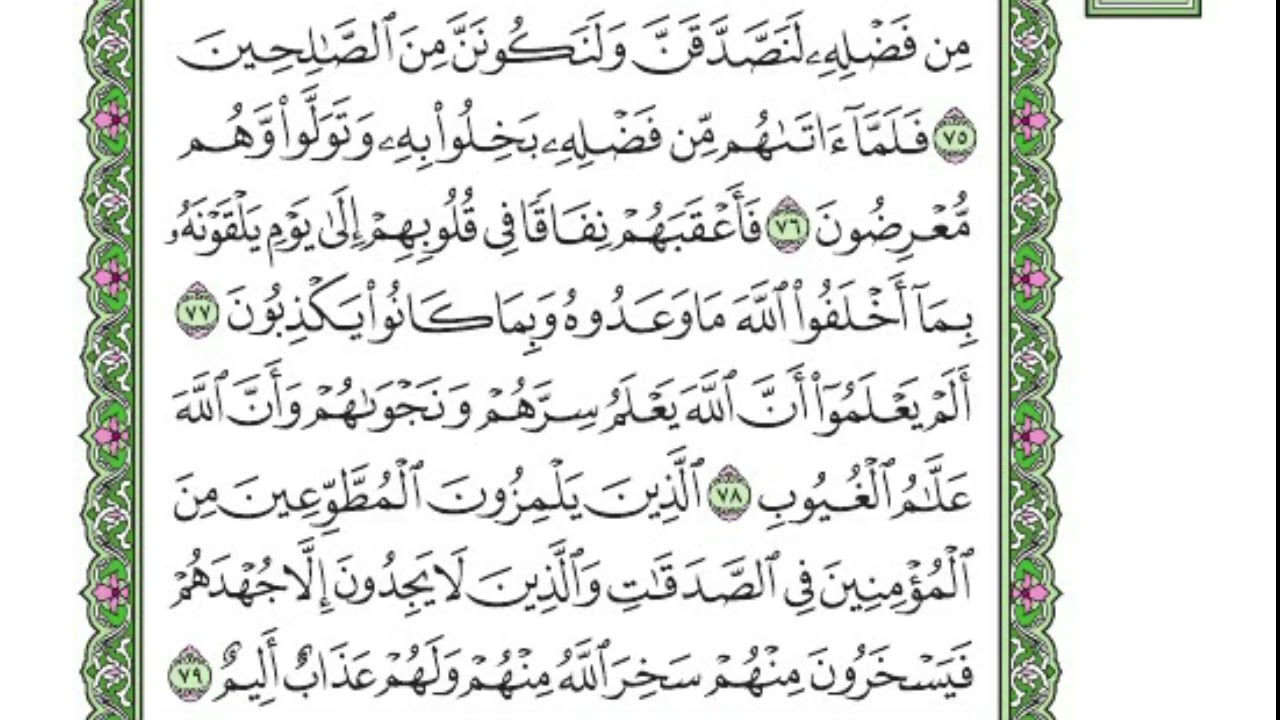 مِن فَضْلِهِۦ لَنَصَّدَّقَنَّ وَلَنَكُونَنَّ مِنَ ٱلصَّٰلِحِينَ
٧٥ فَلَمَّآ ءَاتَىٰهُم مِّن فَضْلِهِۦ بَخِلُوا۟ بِهِۦ وَتَوَلَّوا۟ وَّهُم
مُّعْرِضُونَ ٧٦ فَأَعْقَبَهُمْ نِفَاقًا فِى قُلُوبِهِمْ إِلَىٰ يَوْمِ يَلْقَوْنَهُۥ
بِمَآ أَخْلَفُوا۟ ٱللَّهَ مَا وَعَدُوهُ وَبِمَا كَانُوا۟ يَكْذِبُونَ ٧٧
أَلَمْ يَعْلَمُوٓا۟ أَنَّ ٱللَّهَ يَعْلَمُ سِرَّهُمْ وَنَجْوَىٰهُمْ وَأَنَّ ٱللَّهَ
عَلَّٰمُ ٱلْغُيُوبِ ٧٨ ٱلَّذِينَ يَلْمِزُونَ ٱلْمُطَّوِّعِينَ مِنَ
ٱلْمُؤْمِنِينَ فِى ٱلصَّدَقَٰتِ وَٱلَّذِينَ لَا يَجِدُونَ إِلَّا جُهْدَهُمْ
فَيَسْخَرُونَ مِنْهُمْ سَخِرَ ٱللَّهُ مِنْهُمْ وَلَهُمْ عَذَابٌ أَلِيمٌ ٧٩